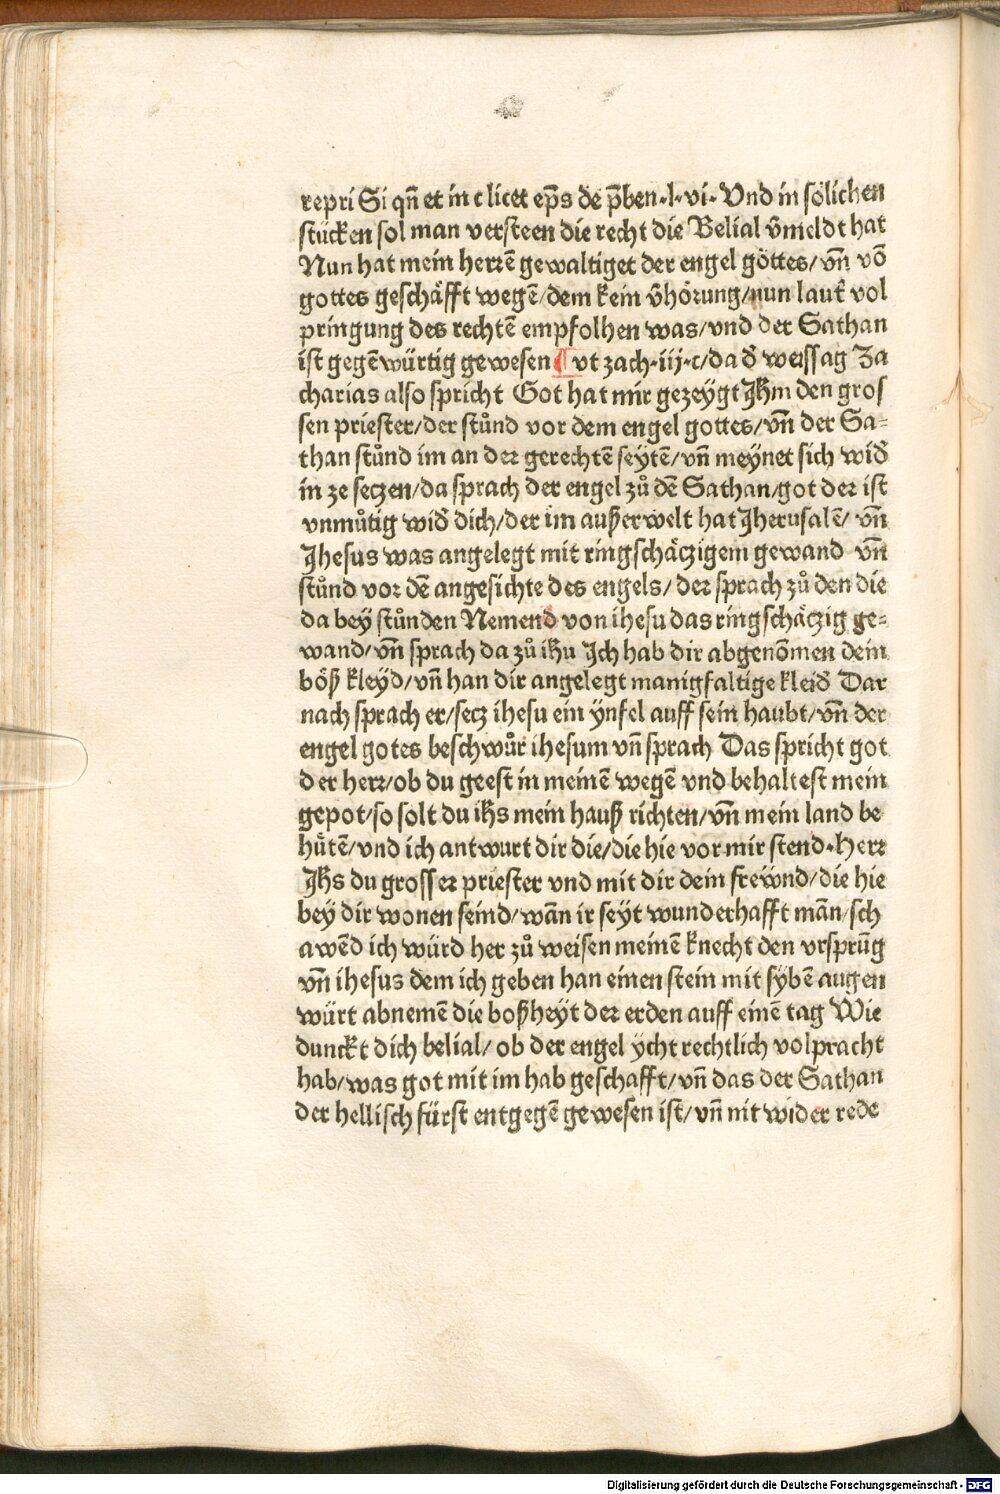 repri Si qn̄ et in c licet ep̄s de p̄ben·l·vi· Vnd in sölichen
stücken sol man versteen die recht die Belial v̄meldt hat
Nun hat mein herrē gewaltiget der engel göttes/ vn̄ vō
gottes geschäfft wegē/dem kein v̄hörung/nun laut̄ vol
pringung des rechtē empfolhen was/vnd der Sathan
ist gegēwürtig gewesen ¶ vt zach·iij·c/da d̄ weissag Za
charias also spricht Got hat mir gezeÿgt Jh̄m den gros
sen priester/der stůnd vor dem engel gottes/vn̄ der Sa⸗
than stůnd im an der gerechtē seÿtē/vn̄ meÿnet sich wid̄
in ze seczen/da sprach der engel zů dē Sathan/got der ist
vnmůtig wid̄ dich/der im außerwelt hat Jherusalē/ vn̄
Jhesus was angelegt mit ringschäczigem gewand vn̄
stůnd vor dē angesichte des engels/ der sprach zů den die
da beÿ stůnden Nemend von ihesu das ringschäczig ge⸗
wand/vn̄ sprach da zů ih̄u Jch hab dir abgenōmen dein
böß kleÿd/vn̄ han dir angelegt manigfaltige kleid̄ Dar
nach sprach er/secz ihesu ein ÿnfel auff sein haubt/vn̄ der
engel gotes beschwůr ihesum vn̄ sprach Das spricht got
der herr/ob du geest in meinē wegē vnd behaltest mein
gepot/so solt du ih̄s mein hauß richten/vn̄ mein land be
hůtē/vnd ich antwurt dir die/die hie vor mir stend·Herr
Jh̄s du grosser priester vnd mit dir dein freẅnd/die hie
beÿ dir wonen seind/wān ir seÿt wunderhafft mān/sch
awēd ich würd her zů weisen meinē knecht den vrsprūg
vn̄ ihesus dem ich geben han einen stein mit sÿbē augen
würt abnemē die boßheÿt der erden auff einē tag Wie
dunckt dich belial/ ob der engel ÿcht rechtlich volpracht
hab/was got mit im hab geschafft/vn̄ das der Sathan
der hellisch fürst entgegē gewesen ist/ vn̄ nit wider rede
Digitalisierung gefördert durch die Deutsche Forschungsgemeinschaft - DFG